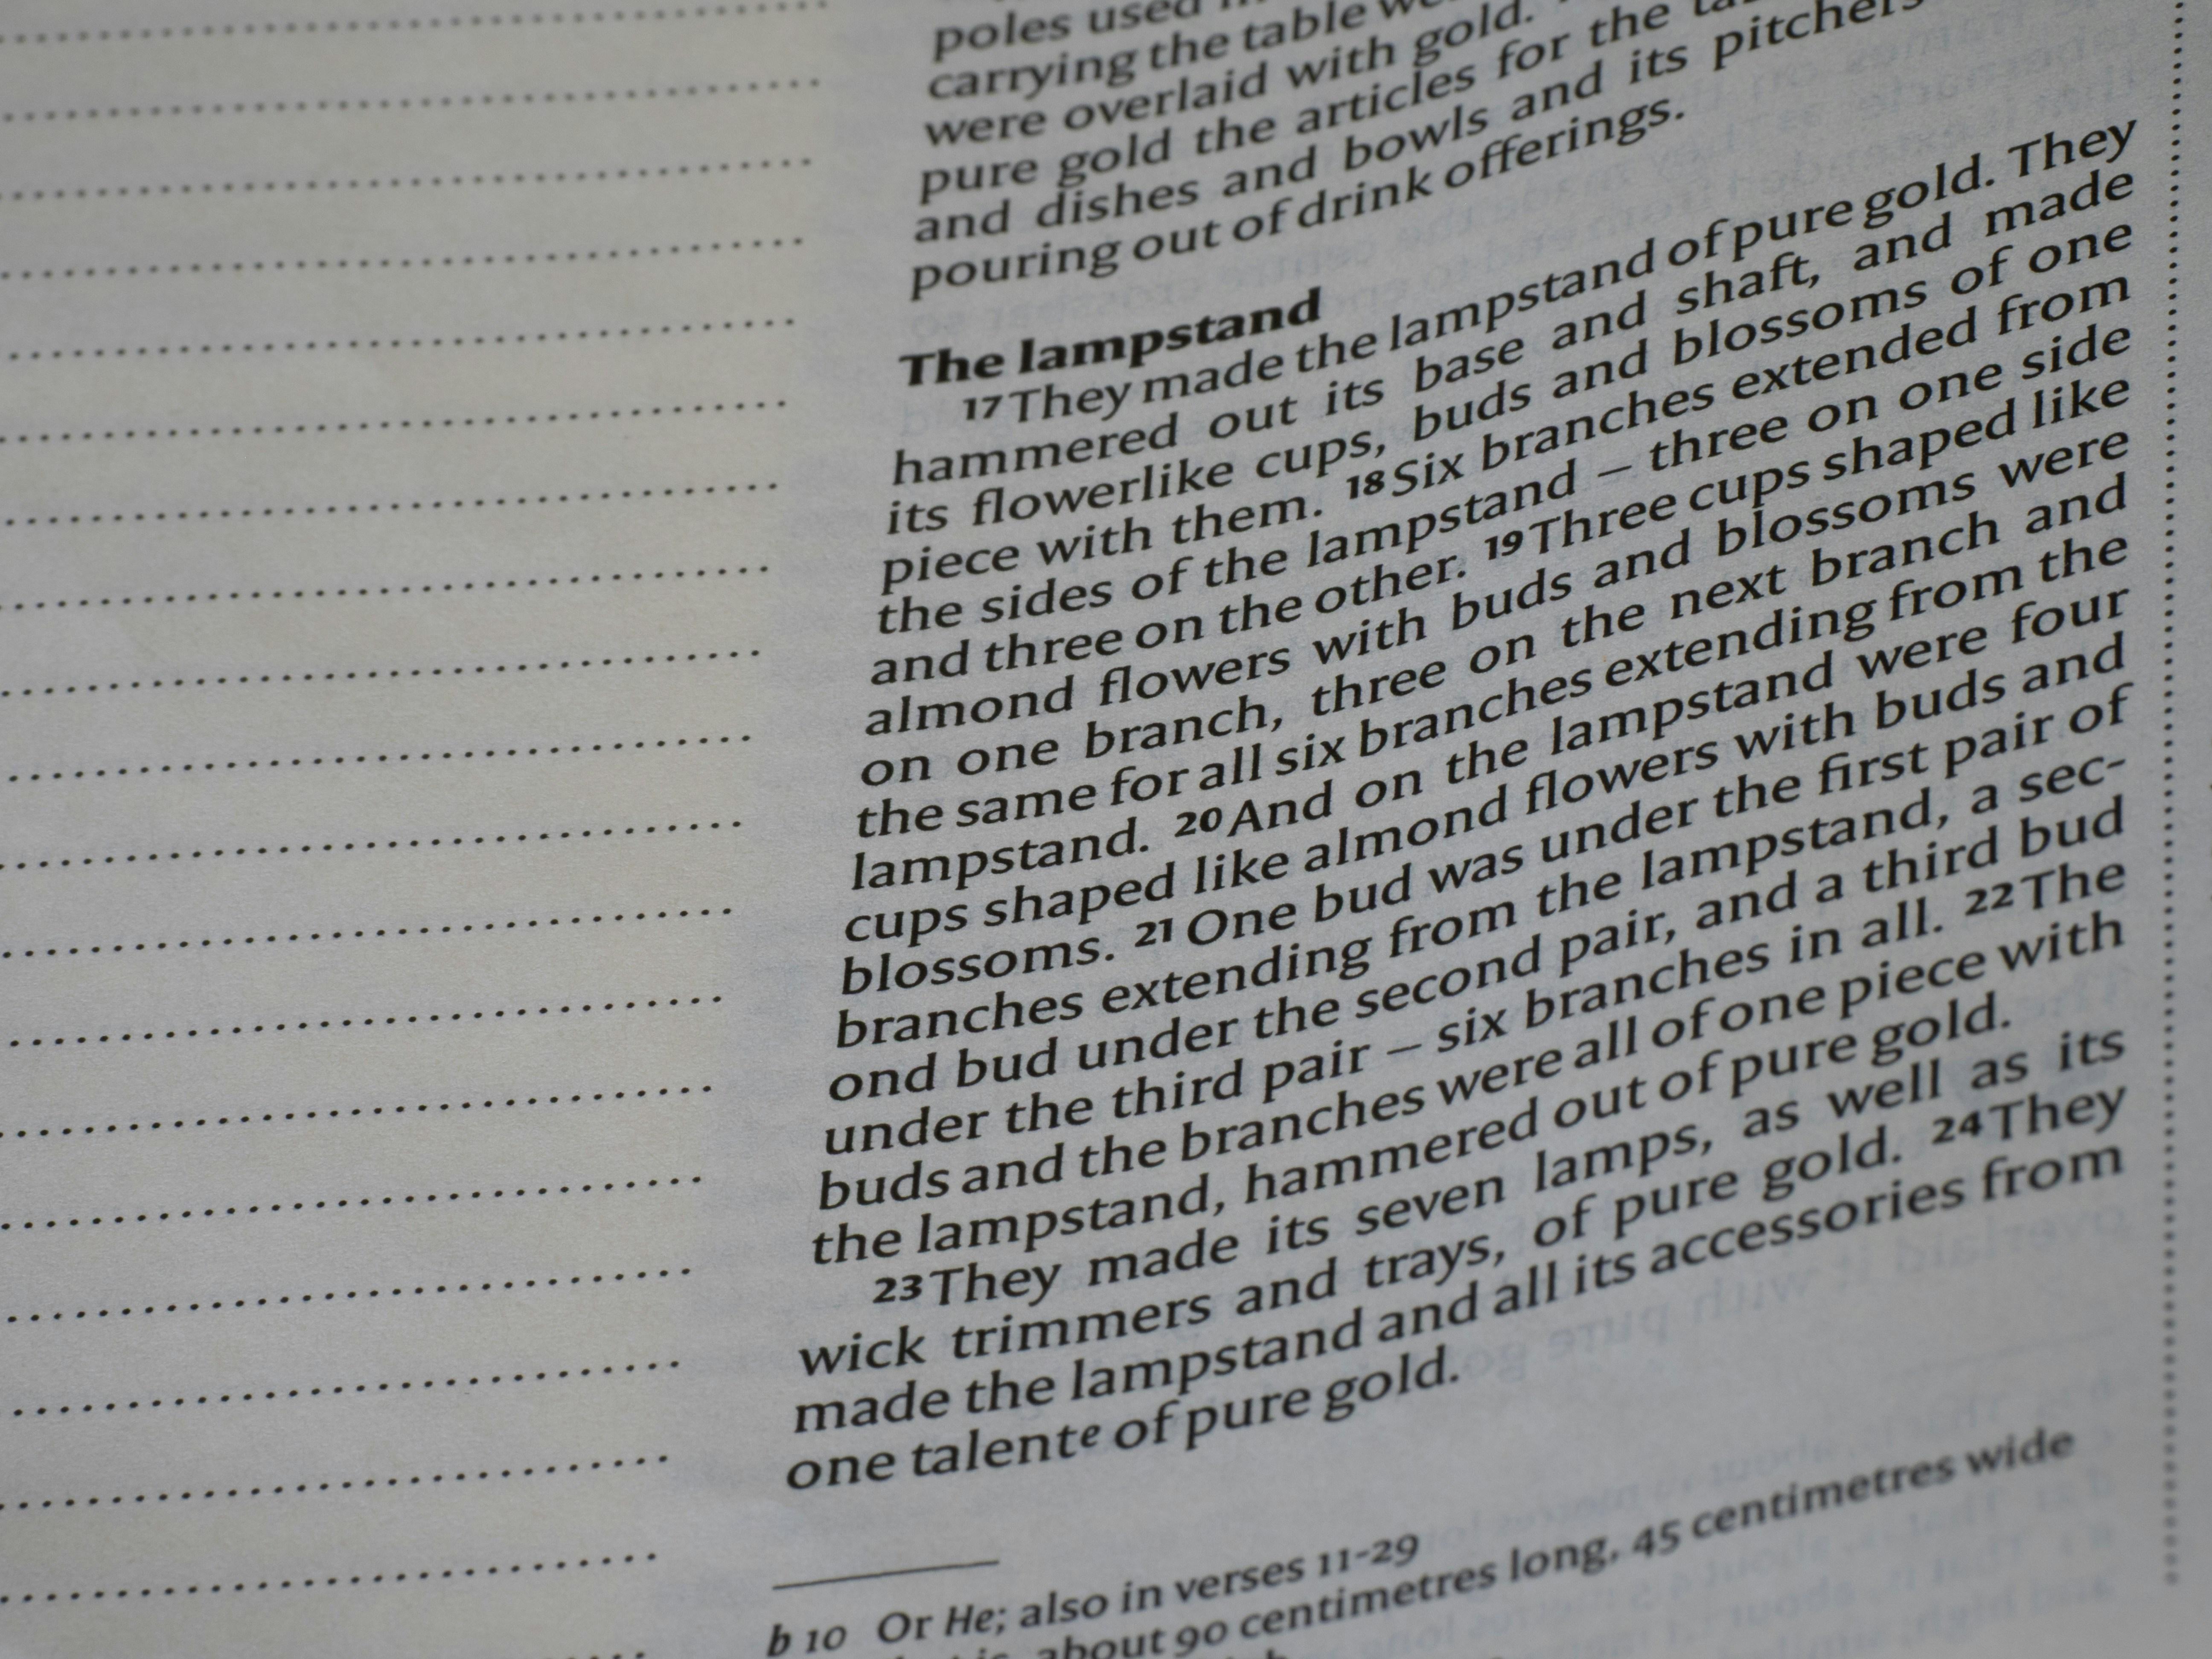 poles used
carrying the table
were overlaid with gold.
pure gold the articles for the
and dishes and bowls and its pitchers
pouring out of drink offerings.
The lampstand
17 They made the lampstand of pure gold. They
hammered out its base and shaft, and made
its flowerlike cups, buds and blossoms of one
piece with them. 18 Six branches extended from
the sides of the lampstand – three on one side
and three on the other. 19 Three cups shaped like
almond flowers with buds and blossoms were
on one branch, three on the next branch and
the same for all six branches extending from the
lampstand. 20 And on the lampstand were four
cups shaped like almond flowers with buds and
blossoms. 21 One bud was under the first pair of
branches extending from the lampstand, a sec-
ond bud under the second pair, and a third bud
under the third pair – six branches in all. 22 The
buds and the branches were all of one piece with
the lampstand, hammered out of pure gold.
23 They made its seven lamps, as well as its
wick trimmers and trays, of pure gold. 24 They
made the lampstand and all its accessories from
one talente of pure gold.
b 10 Or He; also in verses 11-29
about 90 centimetres long, 45 centimetres wide